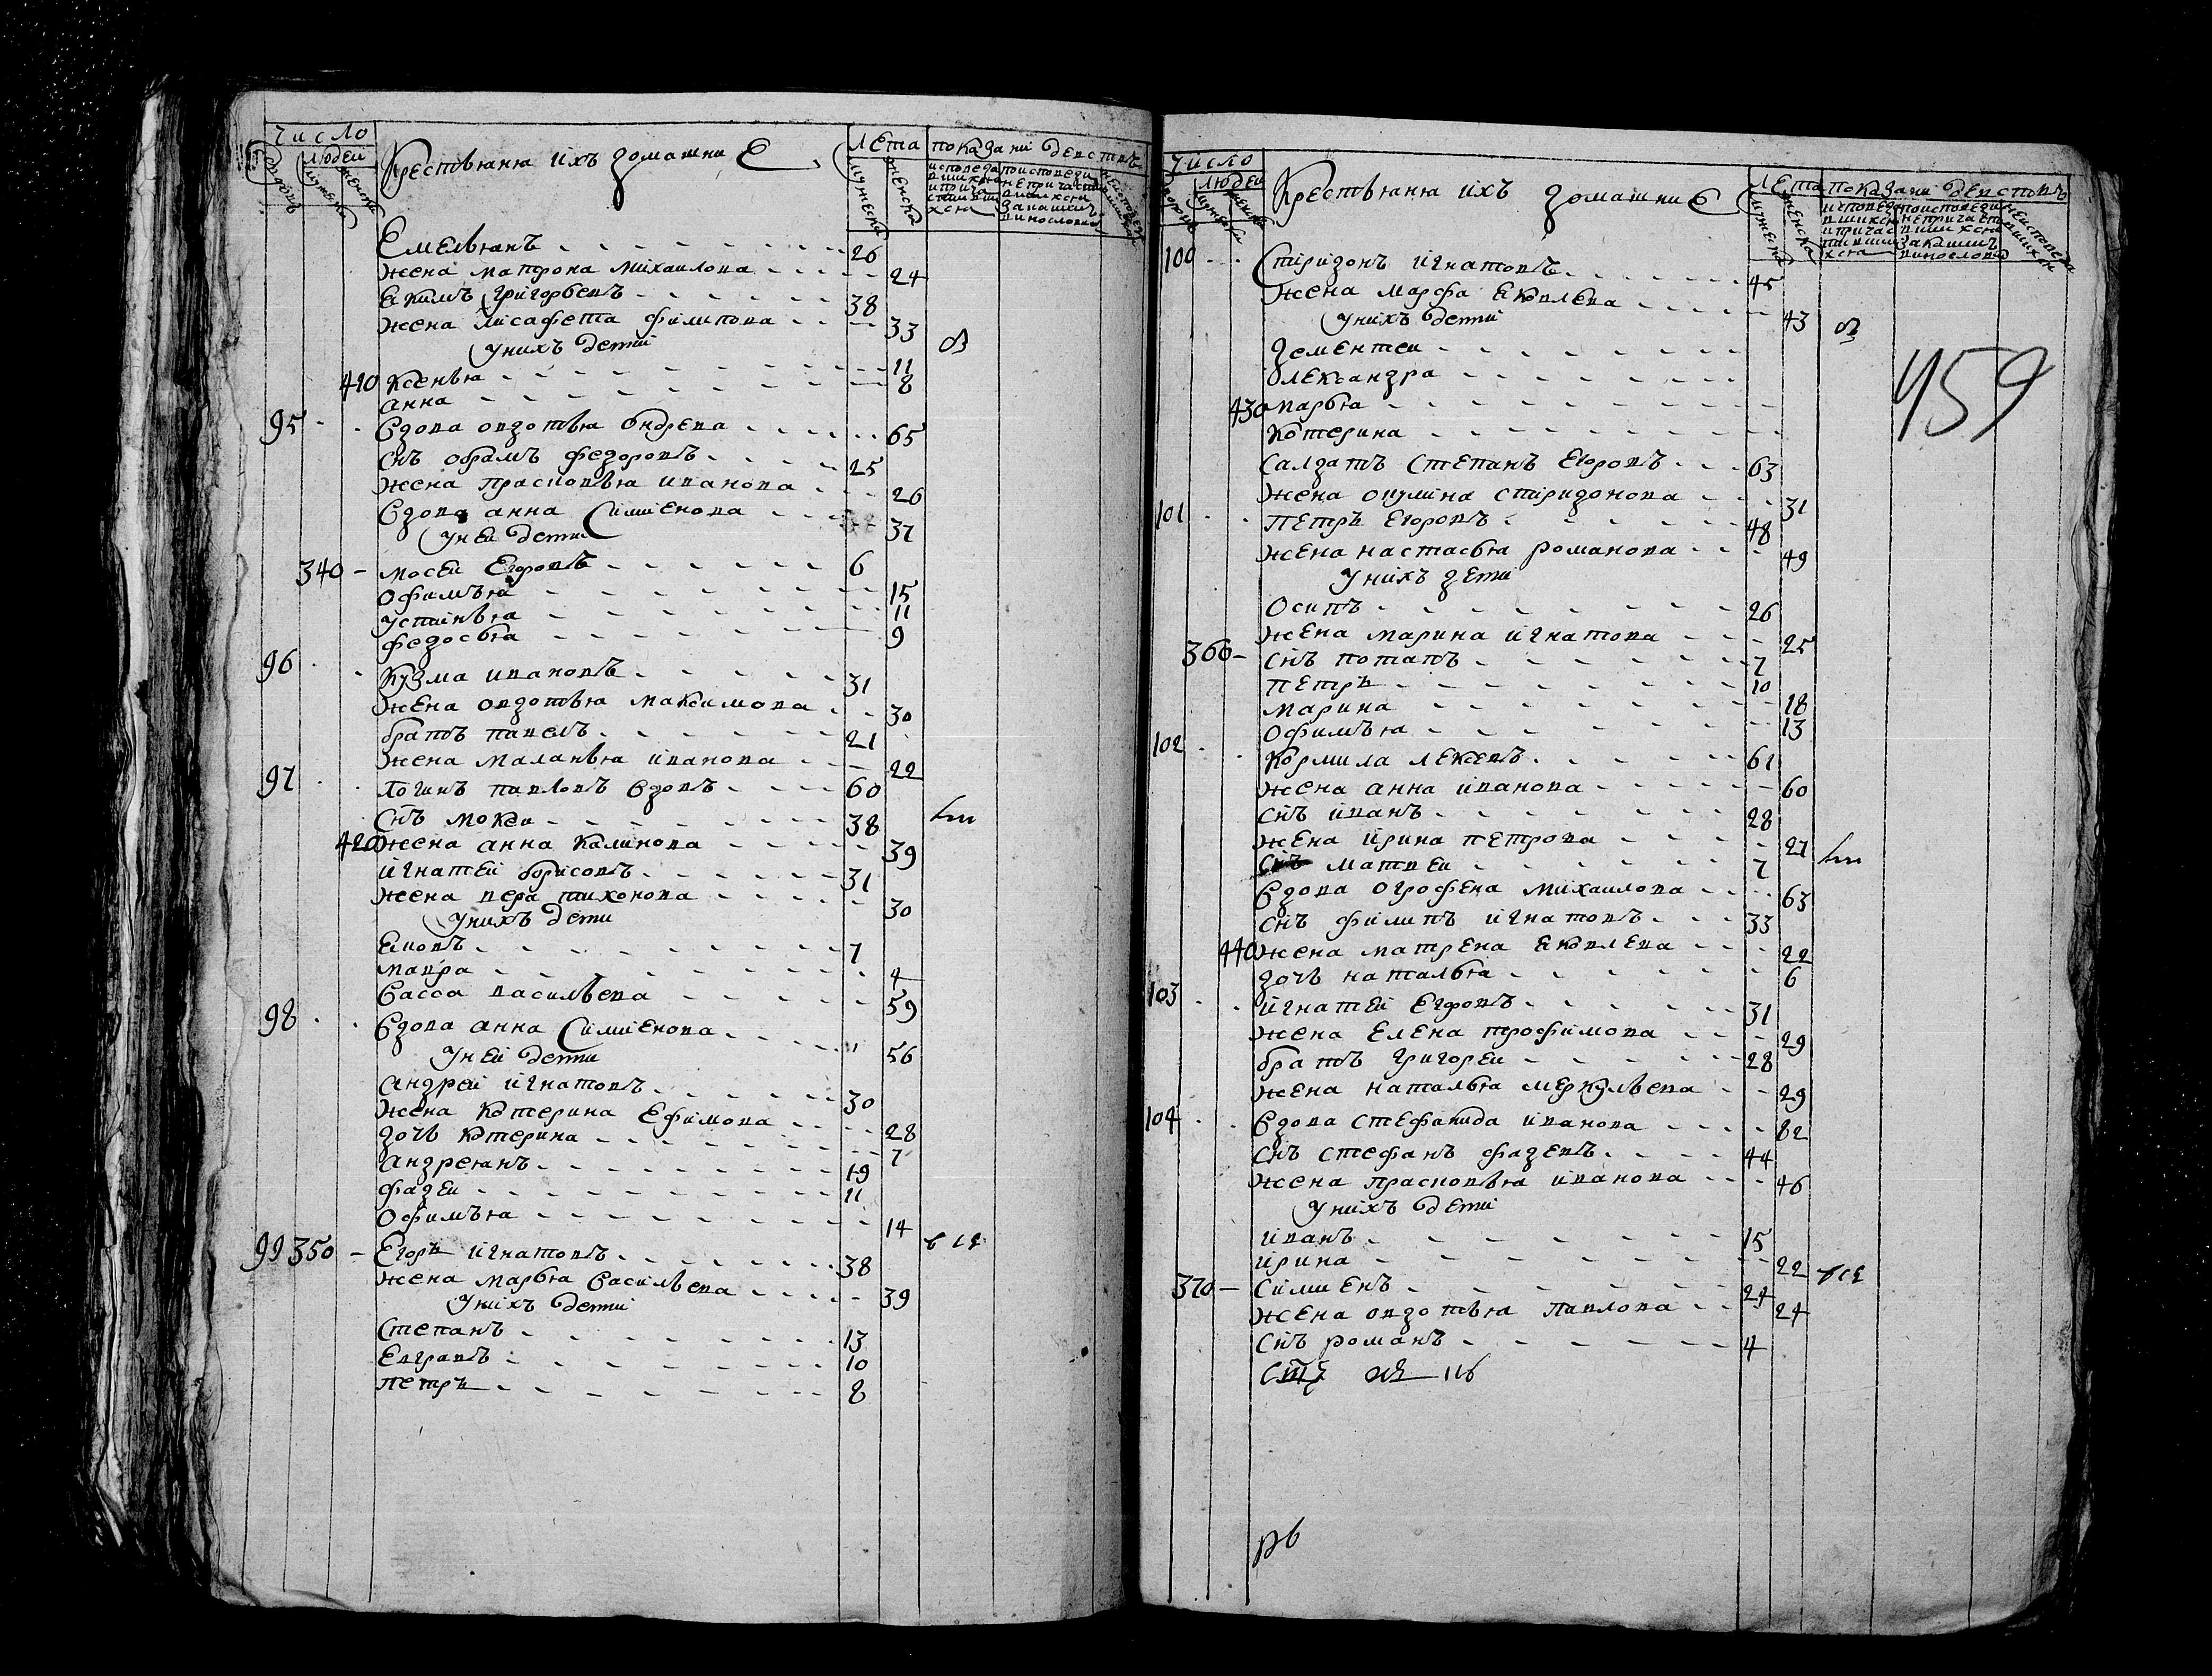 Число
Людей
Крестьяня ихъ домашние
Лета
показани действъ
Емельянъ 26
жена матрона михаилова 24
якимъ григорьевъ 38
жена лисафета филипова 33
у нихъ дети
410 ксенья 11
анна 8
95 вдова овдотья ондрева 65
снъ обрамъ федоровъ 25
жена прасковья иванова 26
вдова анна симиенова 37
у неи дети
340 мосеи егоровъ 6
офимъя 15
устинья 11
федосья 9
96 кузма ивановъ 31
жена овдотья максимова 30
братъ павелъ 21
жена маланья иванова 22
97 логинъ павловъ вдовъ 60
снъ мокеи 38
420 жена анна калинова 39
игнатеи борисовъ 31
жена вера тихонова 30
у нихъ дети
яковъ 7
мавра 4
васса васильева 59
98 вдова анна симиенова 56
у неи дети
андреи игнатовъ 30
жена котерина ефимова 28
дочь котерина 7
андреянъ 19
фадеи 11
офимъя 14
99 350 егоръ игнатовъ 38
жена марья васильева 39
у нихъ дети
степанъ 13
евграфъ 10
петръ 8
Число
Людей
Крестьяня ихъ домашние
Лета
показани действъ
459
100 спиридонъ игнатовъ 45
жена марфа яковлева 43
у нихъ дети
дементеи
олександра
430 марья
котерина
салдатъ степанъ егоровъ 63
жена окулина спиридонова 31
101 петръ егоровъ 48
жена настасья романова 49
у нихъ дети
осипъ 26
жена марина игнатова 25
360 снъ потапъ 7
петръ 10
марина 18
офимъя 13
102 кормила лексевъ 61
жена анна иванова 60
снъ иванъ 28
жена ирина петрова 27
снъ матвеи 7
вдова огрофена михаилова 63
снъ филипъ игнатовъ 33
440 жена матрена яковлева 22
дочь наталья 6
103 игнатеи егоровъ 31
жена елена трофимова 29
братъ григореи 28
жена наталья меркульева 29
104 вдова стефанида иванова 82
снъ стефанъ фадевъ 44
жена прасковья иванова 46
у нихъ дети
иванъ 15
ирина 22
370 симиенъ 24
жена овдотья павлова 24
снъ романъ 4